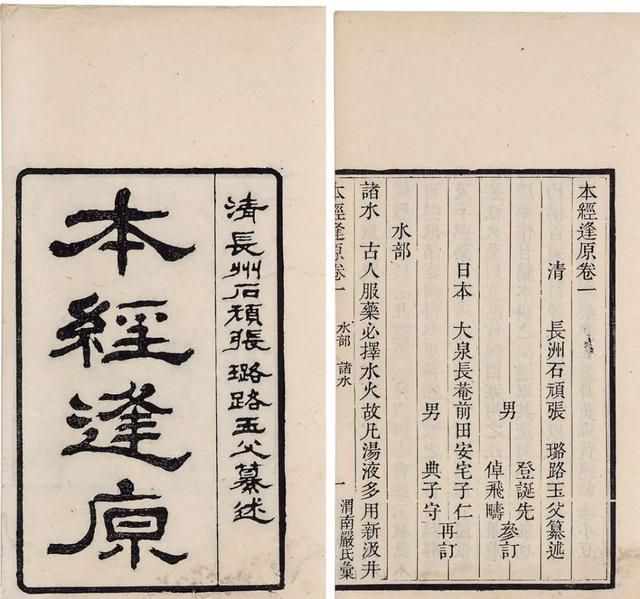 清長州石頑張璐路玉父纂述
本經逢原
本經逢原卷一
清 長洲石頑張 璐路玉父纂述
男 登誕先
倬飛疇 參訂
日本 大泉長菴前田安宅子仁
男 典子守 再訂
水部
諸水 古人服藥必擇水火故凡湯液多用新汲井
本經逢原卷一 水部 諸水 一 渭南嚴氏彙